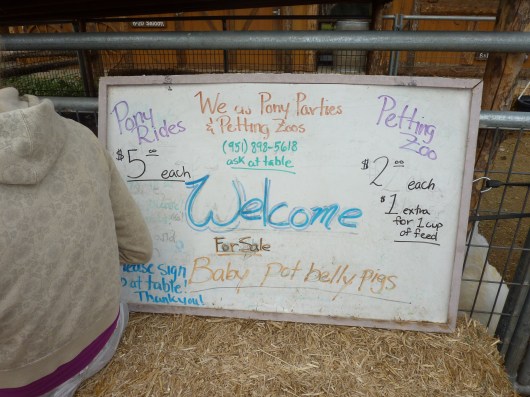 We do Pony Parties
& Petting Zoos
(951) 898-5618
ask at table
Pony
Rides
$5.00 each
Petting
Zoo
$2.00 each
$1 extra
for 1 cup
of feed
Welcome
For Sale
Baby pot belly pigs
sign
at table!
Thankyou!